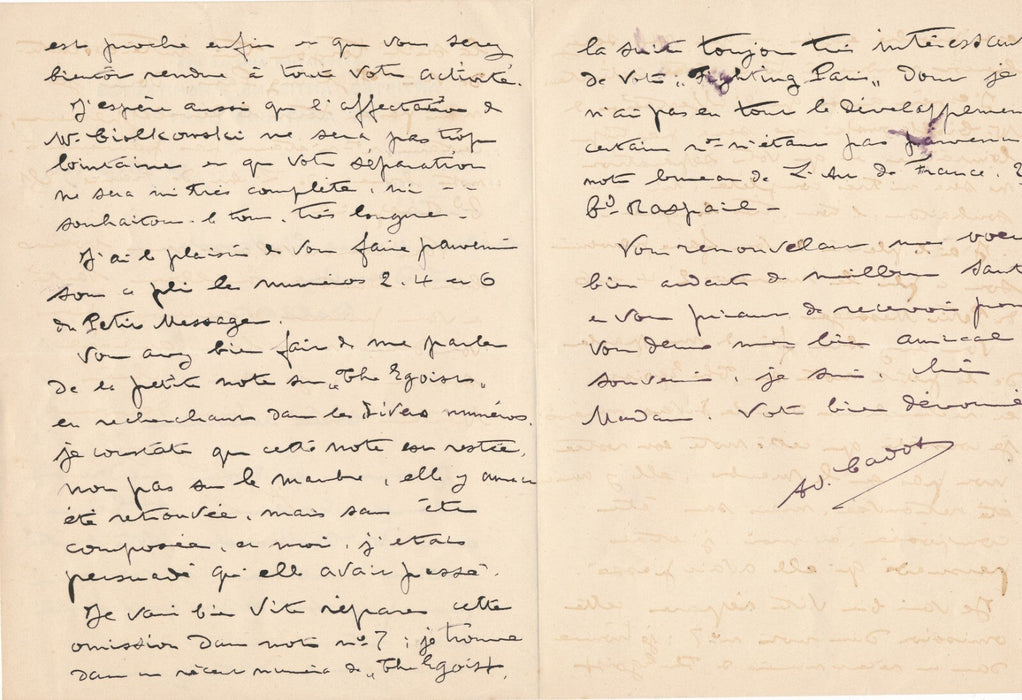 est proche enfin et que vous serez
bientôt rendue à toute votre activité.
J'espère aussi que l'affectation de
Mr Ciolkowski ne sera pas trop
lointaine et que votre séparation
ne sera ni très complète, ni - -
souhaitons-le tous, très longue -
J'ai le plaisir de vous faire parvenir
sous ce pli les numéros 2. 4 et 6
du Petit Messager.
Vous avez bien fait de me parler
de la petite note sur "The Egoist"
en recherchant dans les divers numéros.
je constate que cette note est restée,
non pas sur le marbre, elle y aurait
été retrouvée, mais sans être
composée, et moi, j'étais
persuadé qu'elle avait passé.
Je vais bien vite réparer cette
omission dans notre no 7 ; je trouve
dans un récent numéro de "The Egoist",
la suite toujours très intéressant
de votre "Fighting Paris" dont je
n'ai pas eu tout le développemen
certains nos n'étant pas parvenu
notre bureau de L'Art de France.
Bd Raspail -
Vous renouvelant mes voeux
bien ardents de meilleure santé
et vous priant de recevoir pour
vous deux mon bien amical
souvenir, je suis, chère
Madame, votre bien dévoué
Ad. Cadot